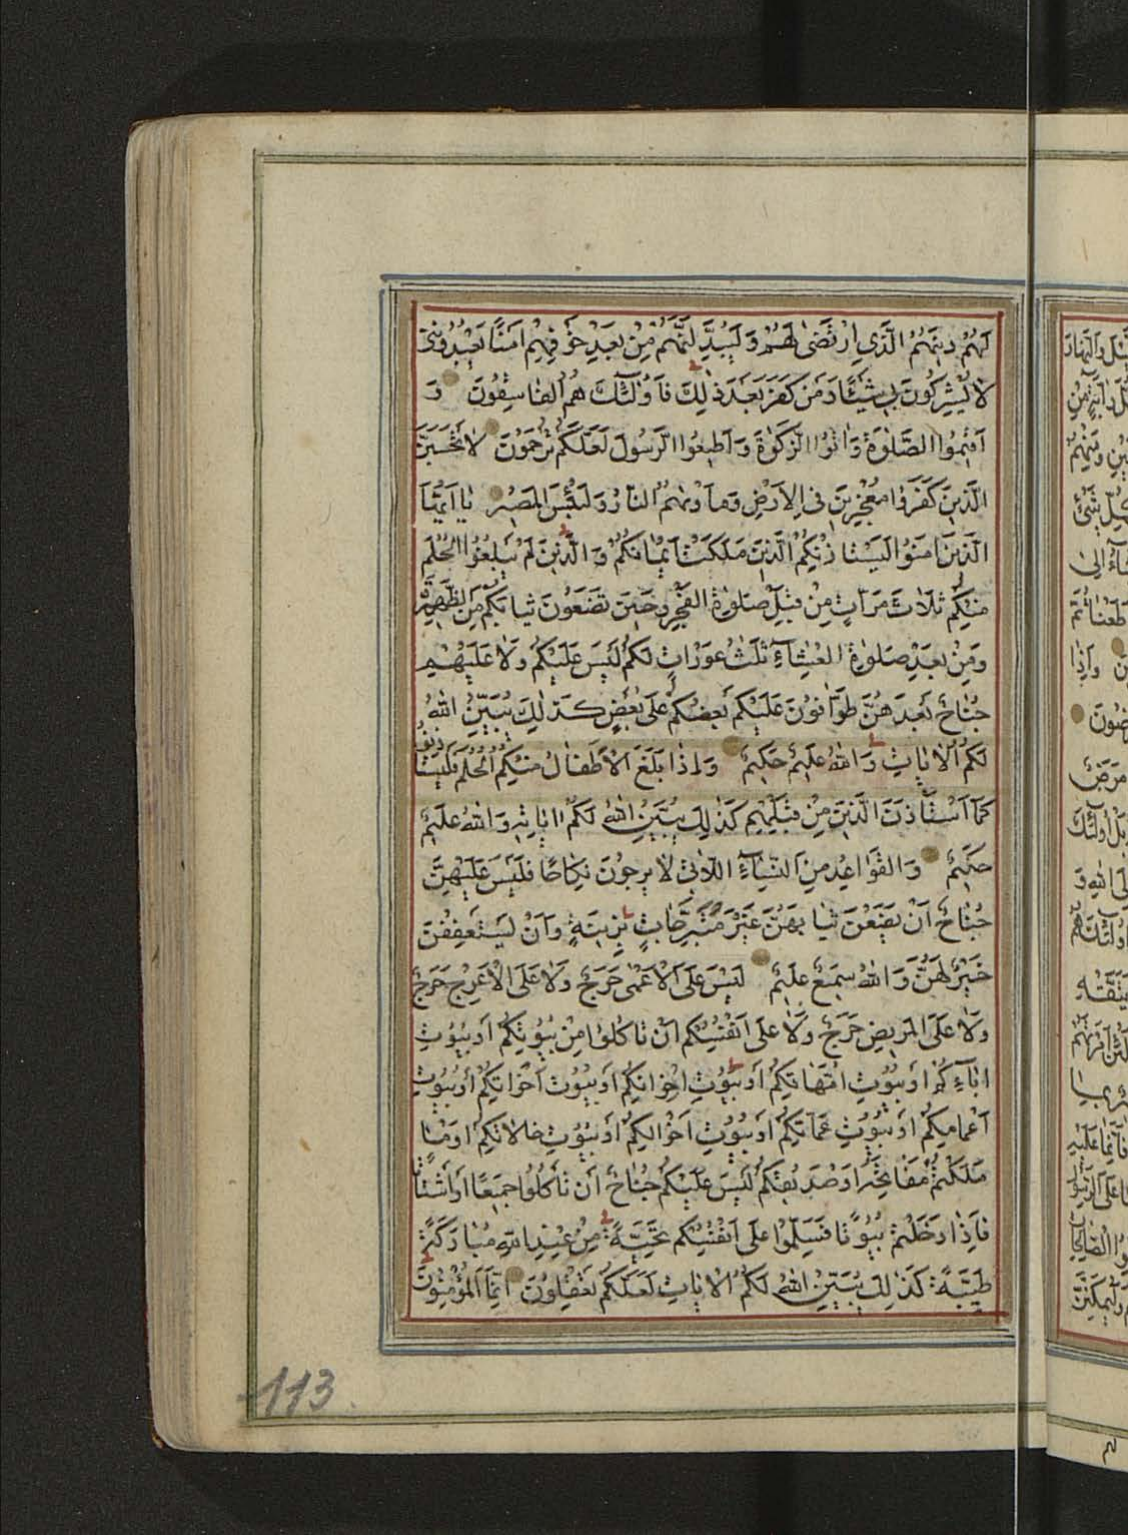 لَهُمْ دِينَهُمُ الَّذِي ارْتَضٰى لَهُمْ وَلَيُبَدِّلَنَّهُمْ مِنْ بَعْدِ خَوْفِهِمْ اَمْنًا يَعْبُدُونَنِي
لَا يُشْرِكُونَ بِي شَيْئًا وَمَنْ كَفَرَ بَعْدَ ذٰلِكَ فَاُولٰئِكَ هُمُ الْفَاسِقُونَ وَ
اَقِيمُوا الصَّلٰوةَ وَاٰتُوا الزَّكٰوةَ وَاَطِيعُوا الرَّسُولَ لَعَلَّكُمْ تُرْحَمُونَ لَا تَحْسَبَنَّ
الَّذِينَ كَفَرُوا مُعْجِزِينَ فِي الْاَرْضِ وَمَاْوٰيهُمُ النَّارُ وَلَبِئْسَ الْمَصِيرُ يَا اَيُّهَا
الَّذِينَ اٰمَنُوا لِيَسْتَاْذِنْكُمُ الَّذِينَ مَلَكَتْ اَيْمَانُكُمْ وَالَّذِينَ لَمْ يَبْلُغُوا الْحُلُمَ
مِنْكُمْ ثَلَاثَ مَرَّاتٍ مِنْ قَبْلِ صَلٰوةِ الْفَجْرِ وَحِينَ تَضَعُونَ ثِيَابَكُمْ مِنَ الظَّهِيرَةِ
وَمِنْ بَعْدِ صَلٰوةِ الْعِشَاءِ ثَلٰثُ عَوْرَاتٍ لَكُمْ لَيْسَ عَلَيْكُمْ وَلَا عَلَيْهِمْ
جُنَاحٌ بَعْدَهُنَّ طَوَّافُونَ عَلَيْكُمْ بَعْضُكُمْ عَلٰى بَعْضٍ كَذٰلِكَ يُبَيِّنُ اللهُ
لَكُمُ الْاٰيَاتِ وَاللهُ عَلِيمٌ حَكِيمٌ وَاِذَا بَلَغَ الْاَطْفَالُ مِنْكُمُ الْحُلُمَ فَلْيَسْتَاْذِنُوا
كَمَا اسْتَاْذَنَ الَّذِينَ مِنْ قَبْلِهِمْ كَذٰلِكَ يُبَيِّنُ اللهُ لَكُمْ اٰيَاتِهِ وَاللهُ عَلِيمٌ
حَكِيمٌ وَالْقَوَاعِدُ مِنَ النِّسَاءِ اللَّاتِي لَا يَرْجُونَ نِكَاحًا فَلَيْسَ عَلَيْهِنَّ
جُنَاحٌ اَنْ يَضَعْنَ ثِيَابَهُنَّ غَيْرَ مُتَبَرِّجَاتٍ بِزِينَةٍ وَاَنْ يَسْتَعْفِفْنَ
خَيْرٌ لَهُنَّ وَاللهُ سَمِيعٌ عَلِيمٌ لَيْسَ عَلَى الْاَعْمٰى حَرَجٌ وَلَا عَلَى الْاَعْرَجِ حَرَجٌ
وَلَا عَلَى الْمَرِيضِ حَرَجٌ وَلَا عَلٰى اَنْفُسِكُمْ اَنْ تَاْكُلُوا مِنْ بُيُوتِكُمْ اَوْ بُيُوتِ
اٰبَائِكُمْ اَوْ بُيُوتِ اُمَّهَاتِكُمْ اَوْ بُيُوتِ اِخْوَانِكُمْ اَوْ بُيُوتِ اَخَوَاتِكُمْ اَوْ بُيُوتِ
اَعْمَامِكُمْ اَوْ بُيُوتِ عَمَّاتِكُمْ اَوْ بُيُوتِ اَخْوَالِكُمْ اَوْ بُيُوتِ خَالَاتِكُمْ اَوْ مَا
مَلَكْتُمْ مَفَاتِحَهُ اَوْ صَدِيقِكُمْ لَيْسَ عَلَيْكُمْ جُنَاحٌ اَنْ تَاْكُلُوا جَمِيعًا اَوْ اَشْتَاتًا
فَاِذَا دَخَلْتُمْ بُيُوتًا فَسَلِّمُوا عَلٰى اَنْفُسِكُمْ تَحِيَّةً مِنْ عِنْدِ اللهِ مُبَارَكَةً
طَيِّبَةً كَذٰلِكَ يُبَيِّنُ اللهُ لَكُمُ الْاٰيَاتِ لَعَلَّكُمْ تَعْقِلُونَ اِنَّمَا الْمُؤْمِنُونَ
113